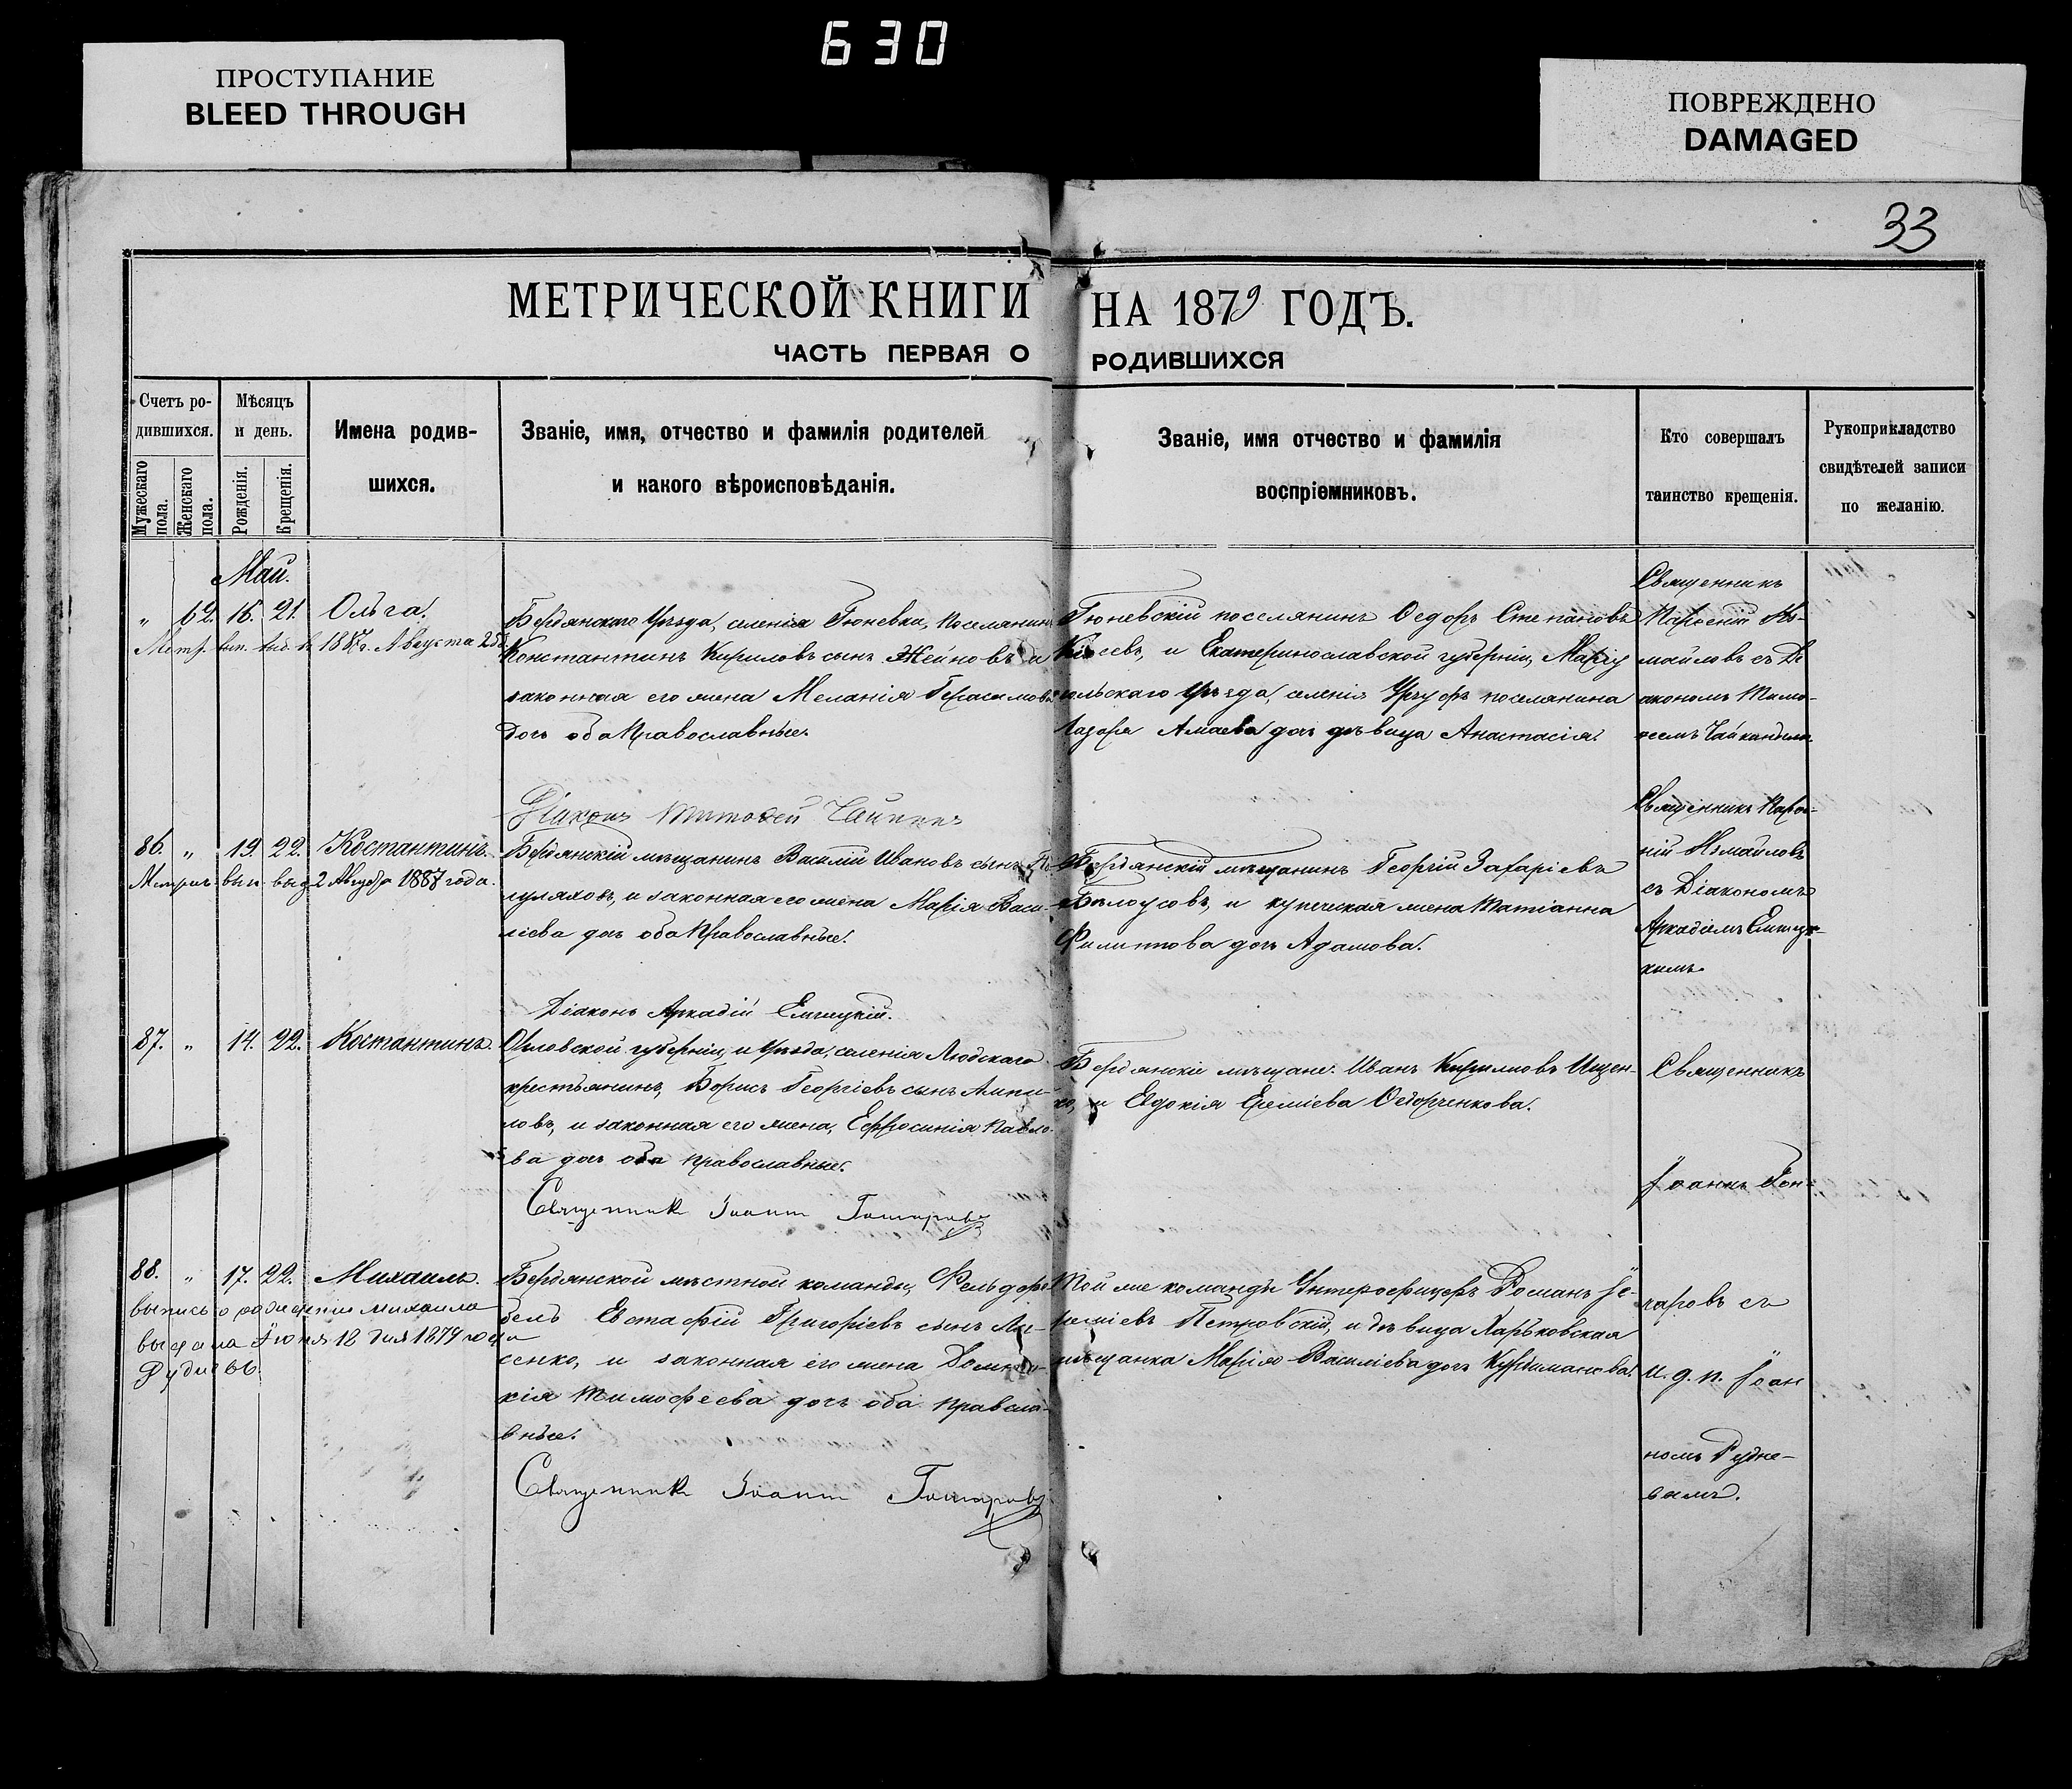 630
ПРОСТУПАНИЕ
BLEED THROUGH
ПОВРЕЖДЕНО
DAMAGED
33
МЕТРИЧЕСКОЙ КНИГИ НА 1879 ГОДЪ.
ЧАСТЬ ПЕРВАЯ О РОДИВШИХСЯ
Счетъ ро-
дившихся.
Мужескаго пола.
Женскаго пола.
Мѣсяцъ
и день.
Рожденія.
Крещенія.
Имена родив-
шихся.
Званіе, имя, отчество и фамилія родителей
и какого вѣроисповѣданія.
Званіе, имя отчество и фамилія
воспріемниковъ.
Кто совершалъ
таинство крещенія.
Рукоприкладство
свидѣтелей записи
по желанію.
Май.
„ 62. 16. 21. Ольга.
Августа
Бердянскаго Уѣзда, селенія Гюневка, поселянинъ
Константинъ Кириловъ сынъ Жейновъ и
законная его жена Меланія Герасимова
дочь оба Православные.
Гюневскій поселянинъ Ѳедоръ Степановъ
Кіосевъ, и Екатеринославской губерніи, Маріу
польскаго Уѣзда, селенія Урзуфъ поселянина
Лазаря Амаева дочь дѣвица Анастасія.
Священникъ
Парѳеній Из-
майловъ съ Ді
акономъ Тимо-
ѳеемъ
Діаконъ Тимоѳей
86. „ 19. 22. Костантинъ.
Метрич. вып. выд 2 Августа 1887 года.
Бердянскій мѣщанинъ Василій Ивановъ сынъ
и законная его жена Марія Васи-
лієва дочь оба Православные.
Бердянскій мѣщанинъ Георгій Захаріевъ
Бѣлоусовъ, и купеческая жена Татіанна
Филиппова дочь Адамова.
Священникъ Парѳе-
ній Измайловъ
съ Діакономъ
Аркадіемъ
кимъ.
Діаконъ Аркадій
87. „ 14. 22. Костантинъ.
Орловской губерніи, и Уѣзда, селенія Людскаго
крестьянинъ, Борисъ Георгіевъ сынъ Анпи-
ловъ, и законная его жена, Ефросинія Павло-
ва дочь оба православные.
Бердянскіе мѣщане: Иванъ Кириловъ Ищен-
ко, и Евдокія Ереміева Ѳедорченкова.
Священникъ
Іоаннъ Гон-
Священникъ Іоаннъ
88. „ 17. 22. Михаилъ.
выпись о рождении михаила
выдана Июня 12 дня 1879 года
Руднєвъ.
Бердянской мѣстной команды, Фельдфе
бель Евстафій Григоріевъ сынъ Лы-
сенко, и законная его жена
кія Тимофеева дочь оба правсла-
вные.
Той же команды Унтерофицеръ Романъ Іе-
реміевъ Петровскій, и дѣвица Харьковская
мѣщанка Марія Василіева дочь
чаровъ съ
и. д. п. Іоан
номъ Рудне-
вымъ.
Священникъ Іоаннъ